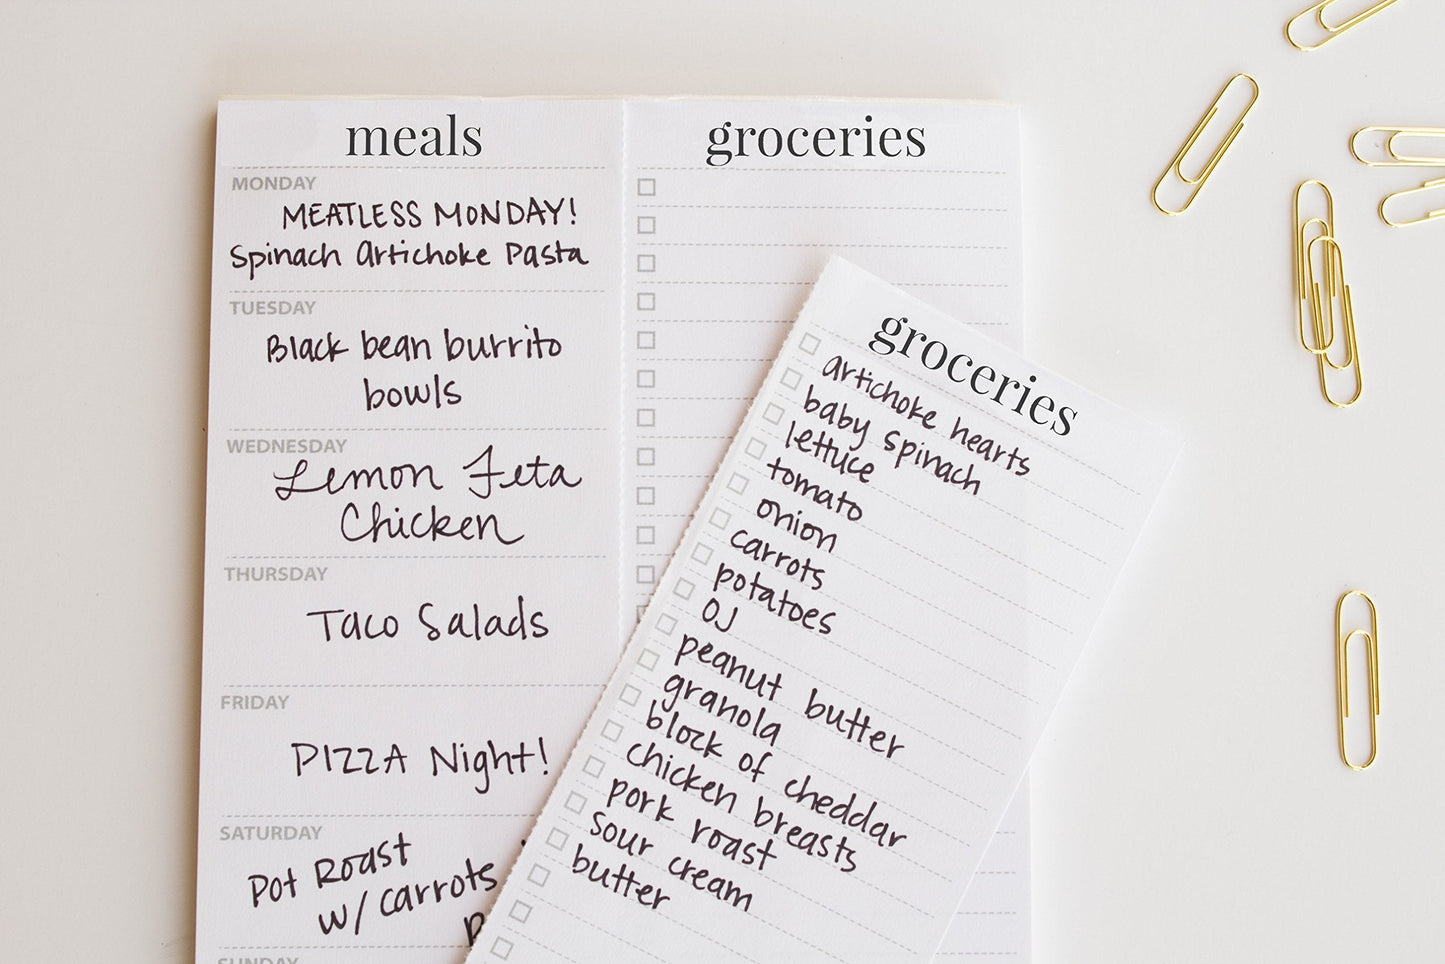 meals
MONDAY
MEATLESS MONDAY!
Spinach Artichoke Pasta
TUESDAY
Black bean burrito
bowls
WEDNESDAY
Lemon Feta
Chicken
THURSDAY
Taco Salads
FRIDAY
PIZZA Night!
SATURDAY
Pot Roast
w/ carrots
SUNDAY
groceries
groceries
artichoke hearts
baby spinach
lettuce
tomato
onion
carrots
potatoes
OJ
peanut butter
granola
block of cheddar
chicken breasts
pork roast
sour cream
butter